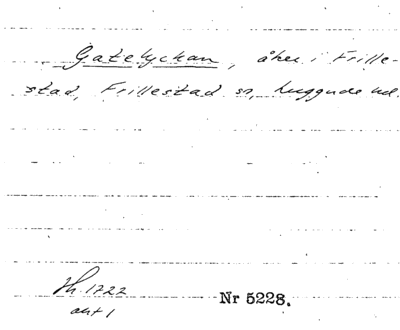 Gatelyckan, åker i Frille-
stad, Frillestad sn, Luggude hd.
Lh. 1722
akt 1
Nr 5228.